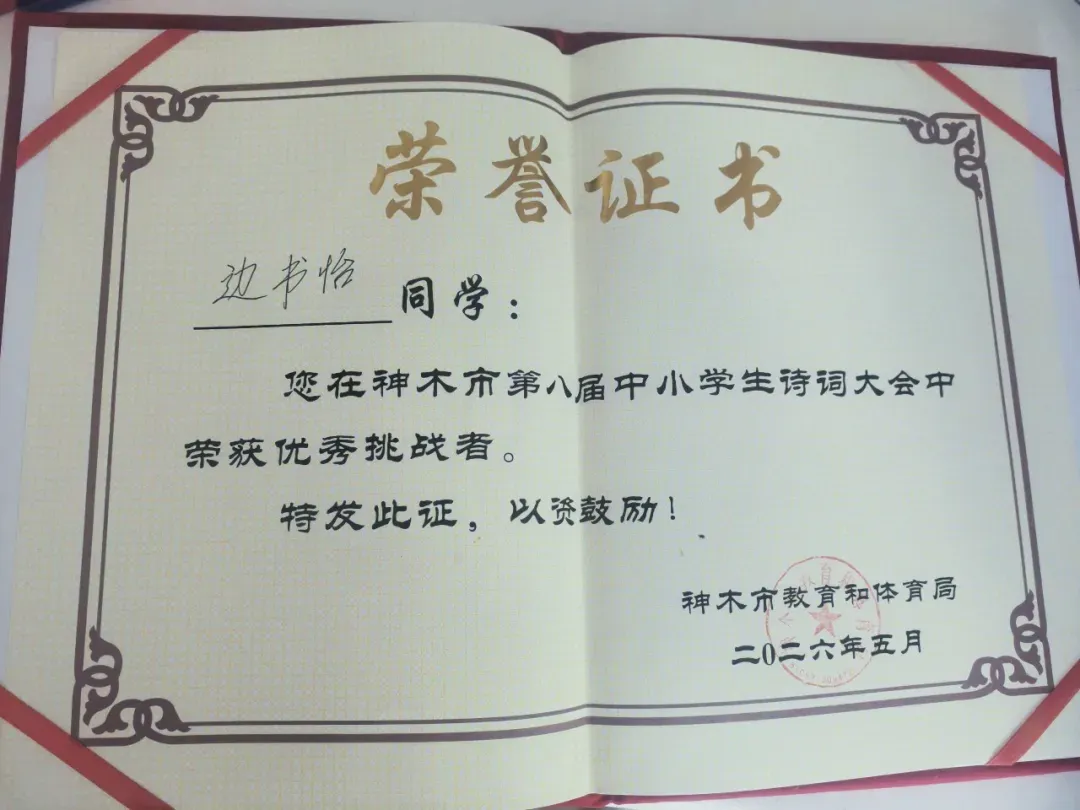 荣誉证书
边书怡 同学：
您在神木市第八届中小学生诗词大会中
荣获优秀挑战者。
特发此证，以资鼓励！
神木市教育和体育局
二0二六年五月